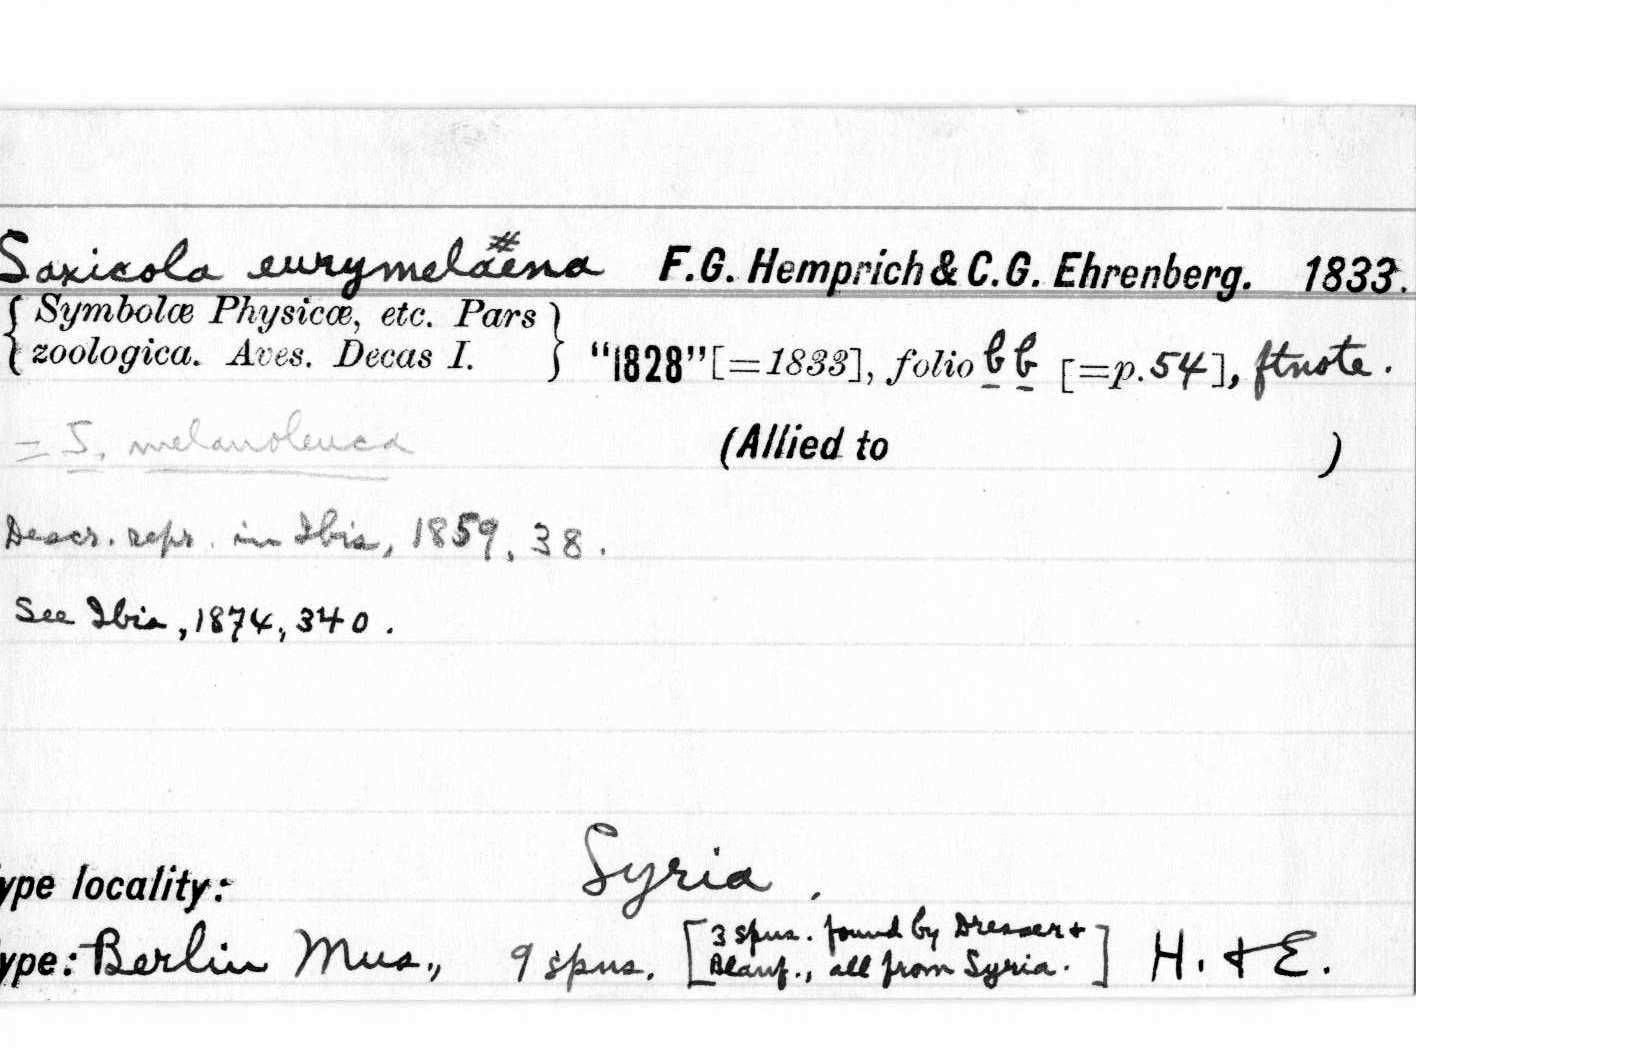 Saxicola eurymelaena # F.G. Hemprich & C.G. Ehrenberg. 1833.
{Symbolæ Physicæ, etc. Pars
zoologica. Aves. Decas I.} "1828" [=1833], folio bb [=p.54], ftnote.
= S. melanoleuca (Allied to )
Descr. repr. in Ibis, 1859, 38.
See Ibis, 1874, 340.
ype locality: Syria,
ype: Berlin Mus., 9 spns. [3 spns. found by Dresser +
Blanf., all from Syria.] H. + E.